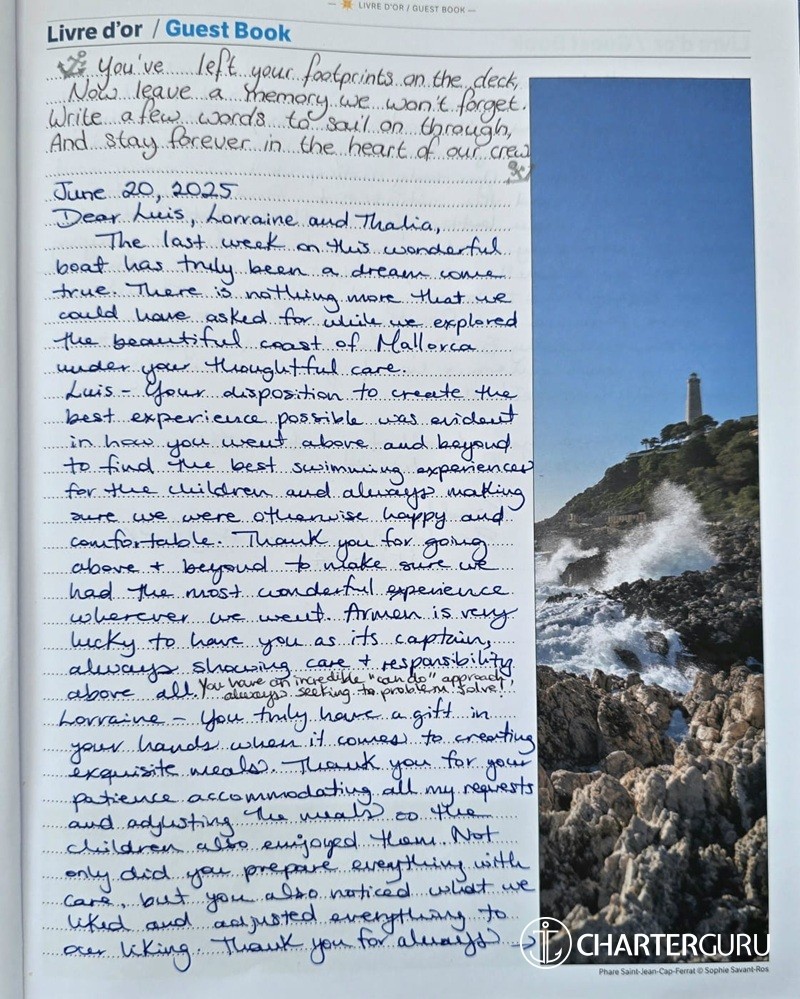 — LIVRE D'OR / GUEST BOOK —
Livre d'or / Guest Book
You've left your footprints on the deck,
Now leave a memory we won't forget.
Write a few words to sail on through,
And stay forever in the heart of our crew
June 20, 2025
Dear Luis, Lorraine and Thalia,
The last week on this wonderful
boat has truly been a dream come
true. There is nothing more that we
could have asked for while we explored
the beautiful coast of Mallorca
under your thoughtful care.
Luis - Your disposition to create the
best experience possible was evident
in how you went above and beyond
to find the best swimming experiences
for the children and always making
sure we were otherwise happy and
comfortable. Thank you for going
above + beyond to make sure we
had the most wonderful experience
wherever we went. Armen is very
lucky to have you as its captain,
always showing care + responsibility
above all. You have an incredible "can do" approach,
always seeking to problem solve!
Lorraine - You truly have a gift in
your hands when it comes to creating
exquisite meals. Thank you for your
patience accommodating all my requests
and adjusting the meals so the
children also enjoyed them. Not
only did you prepare everything with
care, but you also noticed what we
liked and adjusted everything to
our liking. Thank you for always →
CHARTERGURU
Phare Saint-Jean-Cap-Ferrat © Sophie Savant-Ros